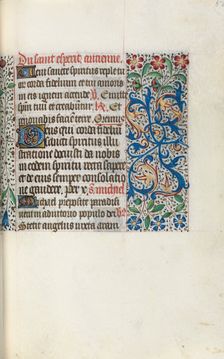 Du saint esperit antienne.
Veni sancte spiritus reple tuo
rum corda fidelium et tui amoris
in eis ignem accende. V. Emitte
spm tuu et creabunt. R. Et
renovabis faciem tre. Oremus
Deus qui corda fidelium
sancti spiritus illu
stratione docuisti da nobis
in eodem spiritu recta sapere
et de eius semper consolatio
ne gaudere. per x. S. michel
Michael preposite paradisi
veni in adiutorio populo dei
Stetit angelus iuxta aram